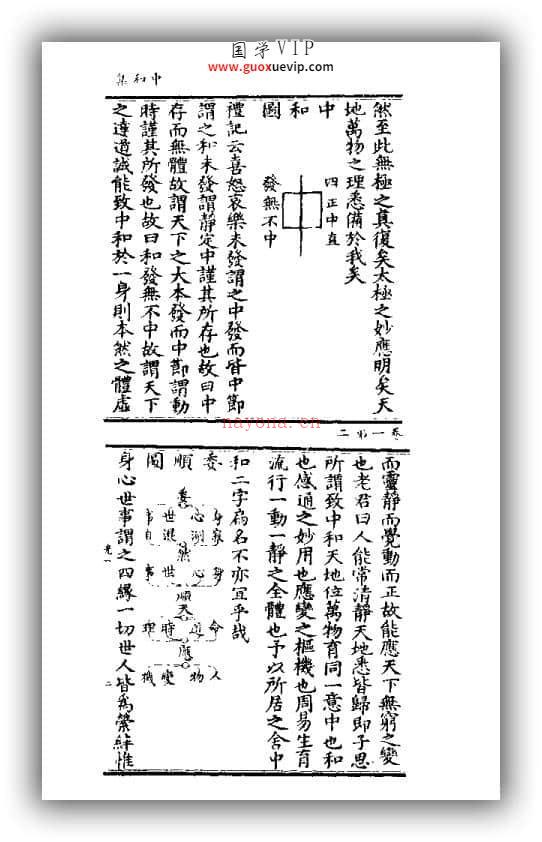 国学VIP
www.guoxuevip.com
中和集
然至此無極之真復矣太極之妙應明矣天
地萬物之理悉備於我矣
中和圖
四正中直
發無不中
禮記云喜怒哀樂未發謂之中發而皆中節
謂之和未發謂靜定中謹其所存也故曰中
存而無體故謂天下之大本發而中節謂動
時謹其所發也故曰和發無不中故謂天下
之達道誠能致中和於一身則本然之體虛
nayona.cn
卷一第二
而靈靜而覺動而正故能應天下無窮之變
也老君曰人能常清靜天地悉皆歸即子思
所謂致中和天地位萬物育同一意中也和
也感通之妙用也應變之樞機也周易生育
流行一動一靜之全體也予以所居之舍中
和二字扁名不亦宜乎哉
委順圖
委
身心世事
寂洞混自
然
身心世事
順天
命道時理
應
人物變機
身心世事謂之四緣一切世人皆為縈絆惟